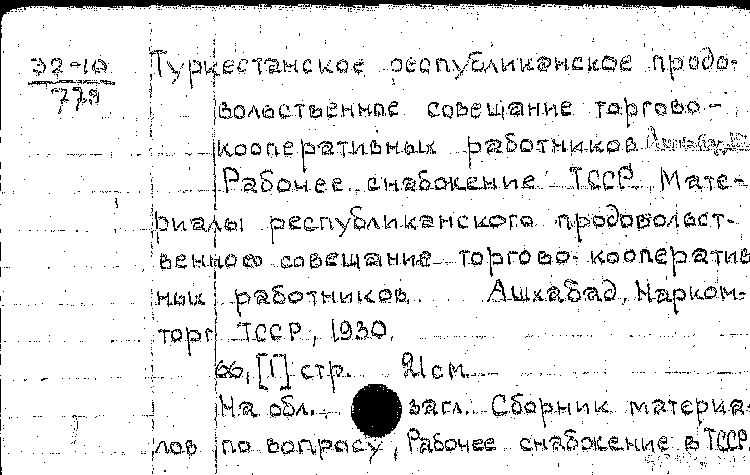 Э2-10
779
Туркестанское республиканское продо-
вольственное совещание торгово-
кооперативных работников
Рабочее снабжение ТССР. Мате-
риалы республиканского продовольст-
венного совещание торгово-кооператив
ных работников. Ашхабад, Нарком-
торг ТССР, 1930.
66, [1] стр. 21 см.
На обл. загл.: Сборник материа-
лов по вопросу, Рабочее снабжение в ТССР